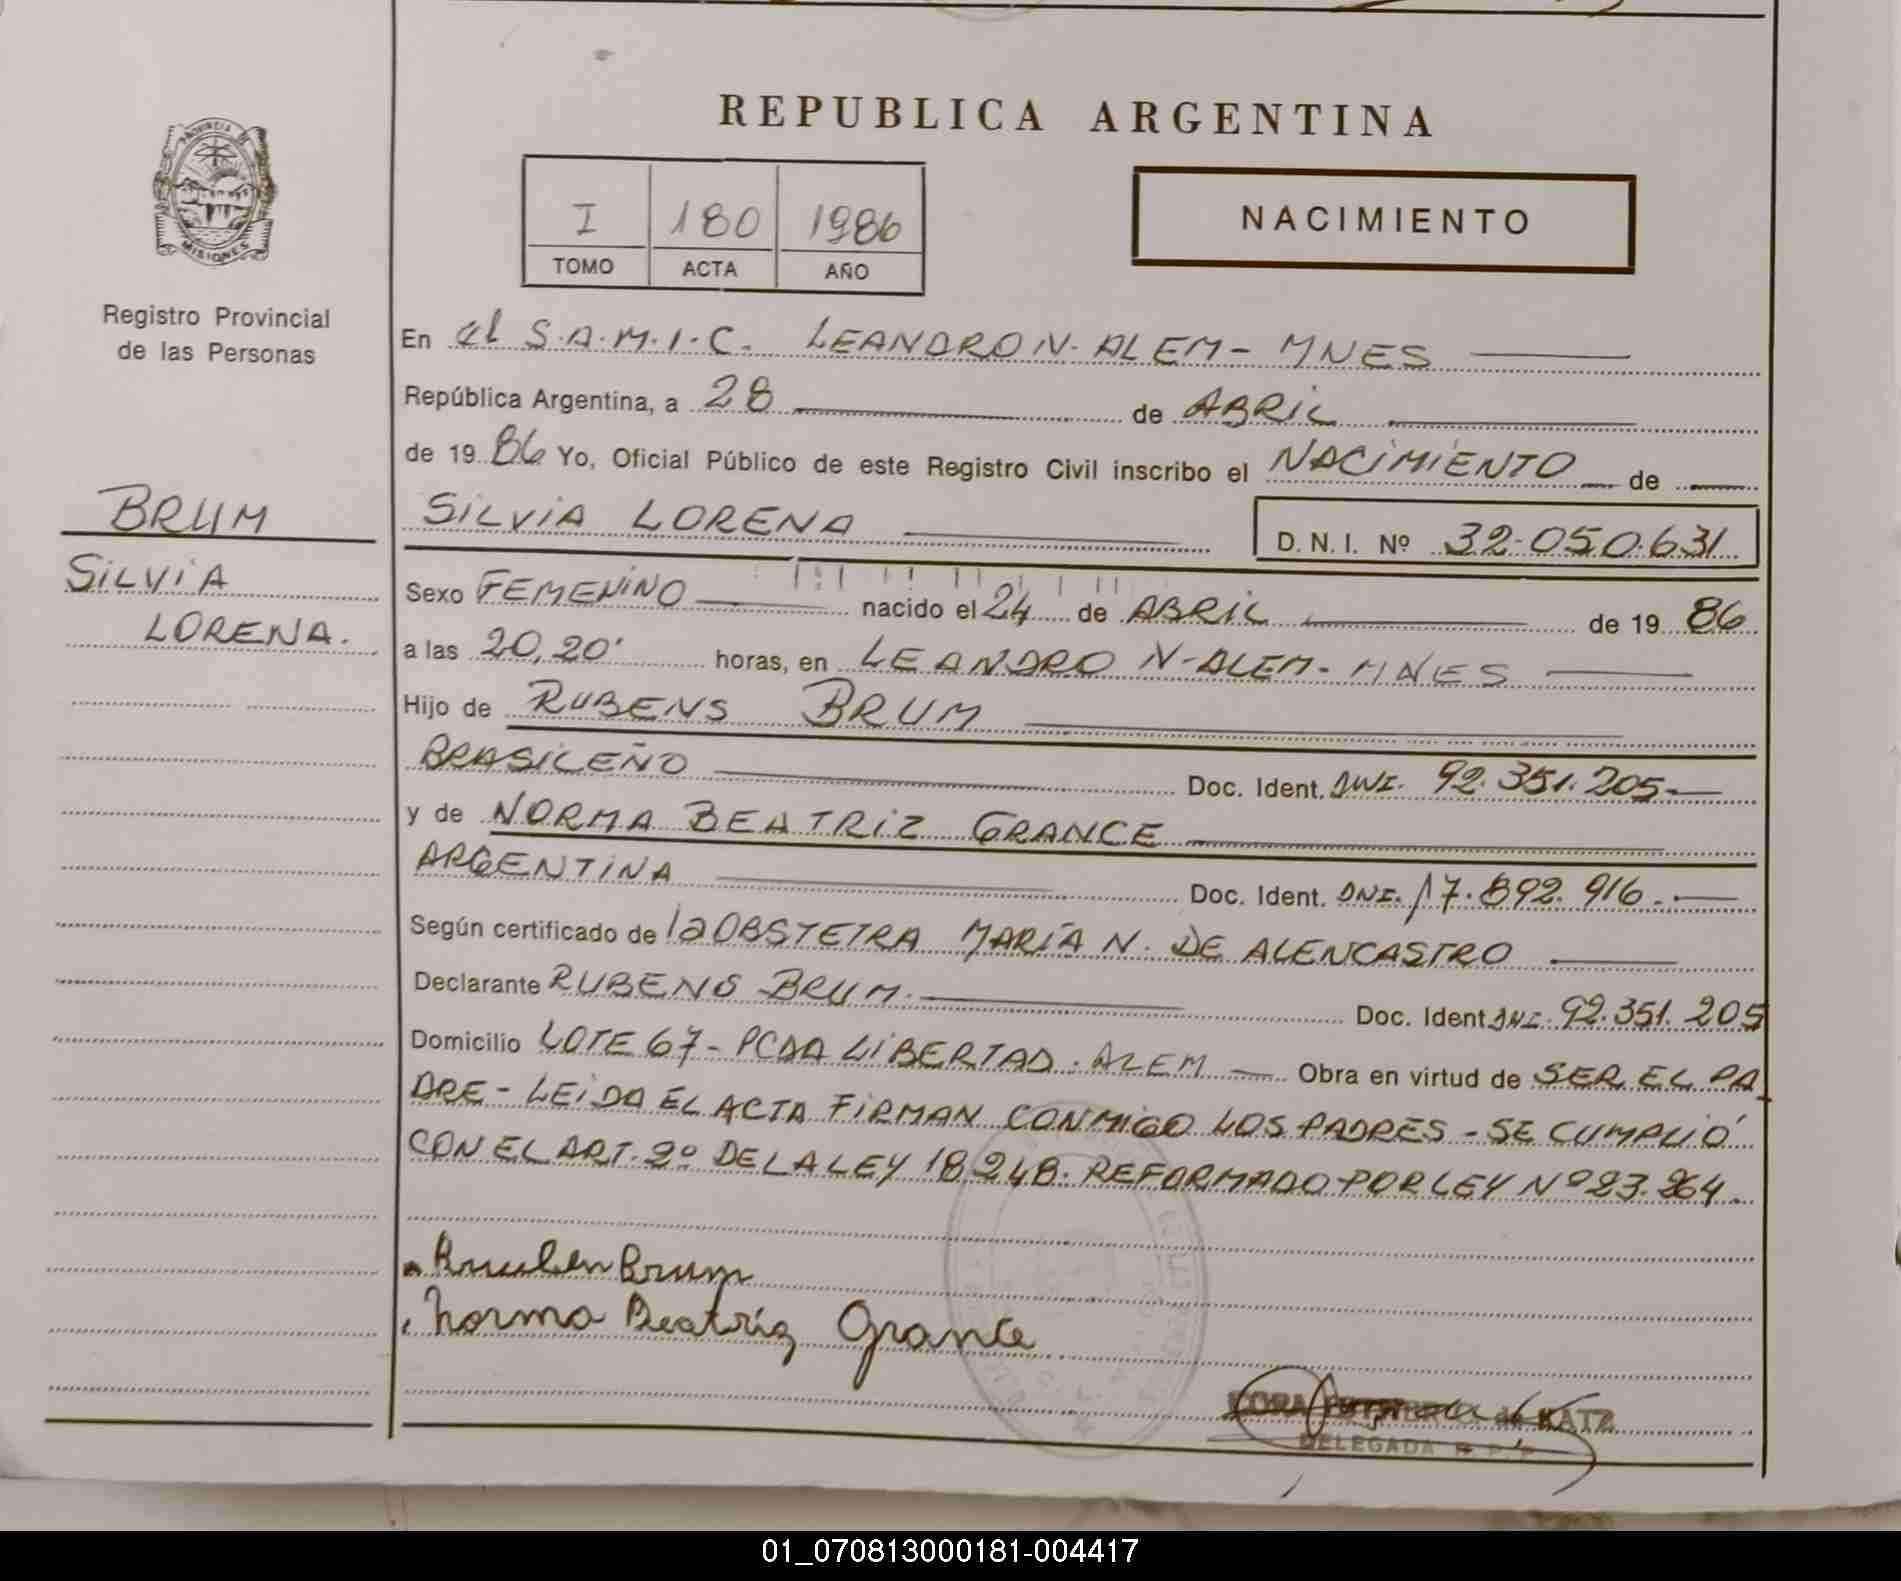 REPUBLICA ARGENTINA
PROVINCIA DE
MISIONES
Registro Provincial
de las Personas
I 180 1986
TOMO ACTA AÑO
NACIMIENTO
BRUM
SILVIA
LORENA.
En el S.A.M.I.C. LEANDRO N. ALEM - MNES
República Argentina, a 28 de ABRIL
de 19 86 Yo, Oficial Público de este Registro Civil inscribo el NACIMIENTO de
SILVIA LORENA D.N.I. Nº 32.050.631
Sexo FEMENINO nacido el 24 de ABRIL de 19 86
a las 20,20' horas, en LEANDRO N-ALEM- MNES
Hijo de RUBENS BRUM
BRASILEÑO Doc. Ident. DNI. 92.351.205.-
y de NORMA BEATRIZ GRANCE
ARGENTINA Doc. Ident. DNI. 17.892.916.-
Según certificado de la OBSTETRA MARÍA N. DE ALENCASTRO
Declarante RUBENS BRUM. Doc. Ident DNI. 92.351.205
Domicilio LOTE 67 - PCDA LIBERTAD. ALEM Obra en virtud de SER EL PA
DRE - LEIDA EL ACTA FIRMAN CONMIGO LOS PADRES - SE CUMPLIÓ
CON EL ART. 2º DE LA LEY 18.248. REFORMADO POR LEY Nº 23.264.
Brum
Norma Beatriz Grance
de KATZ
DELEGADA
01_070813000181-004417